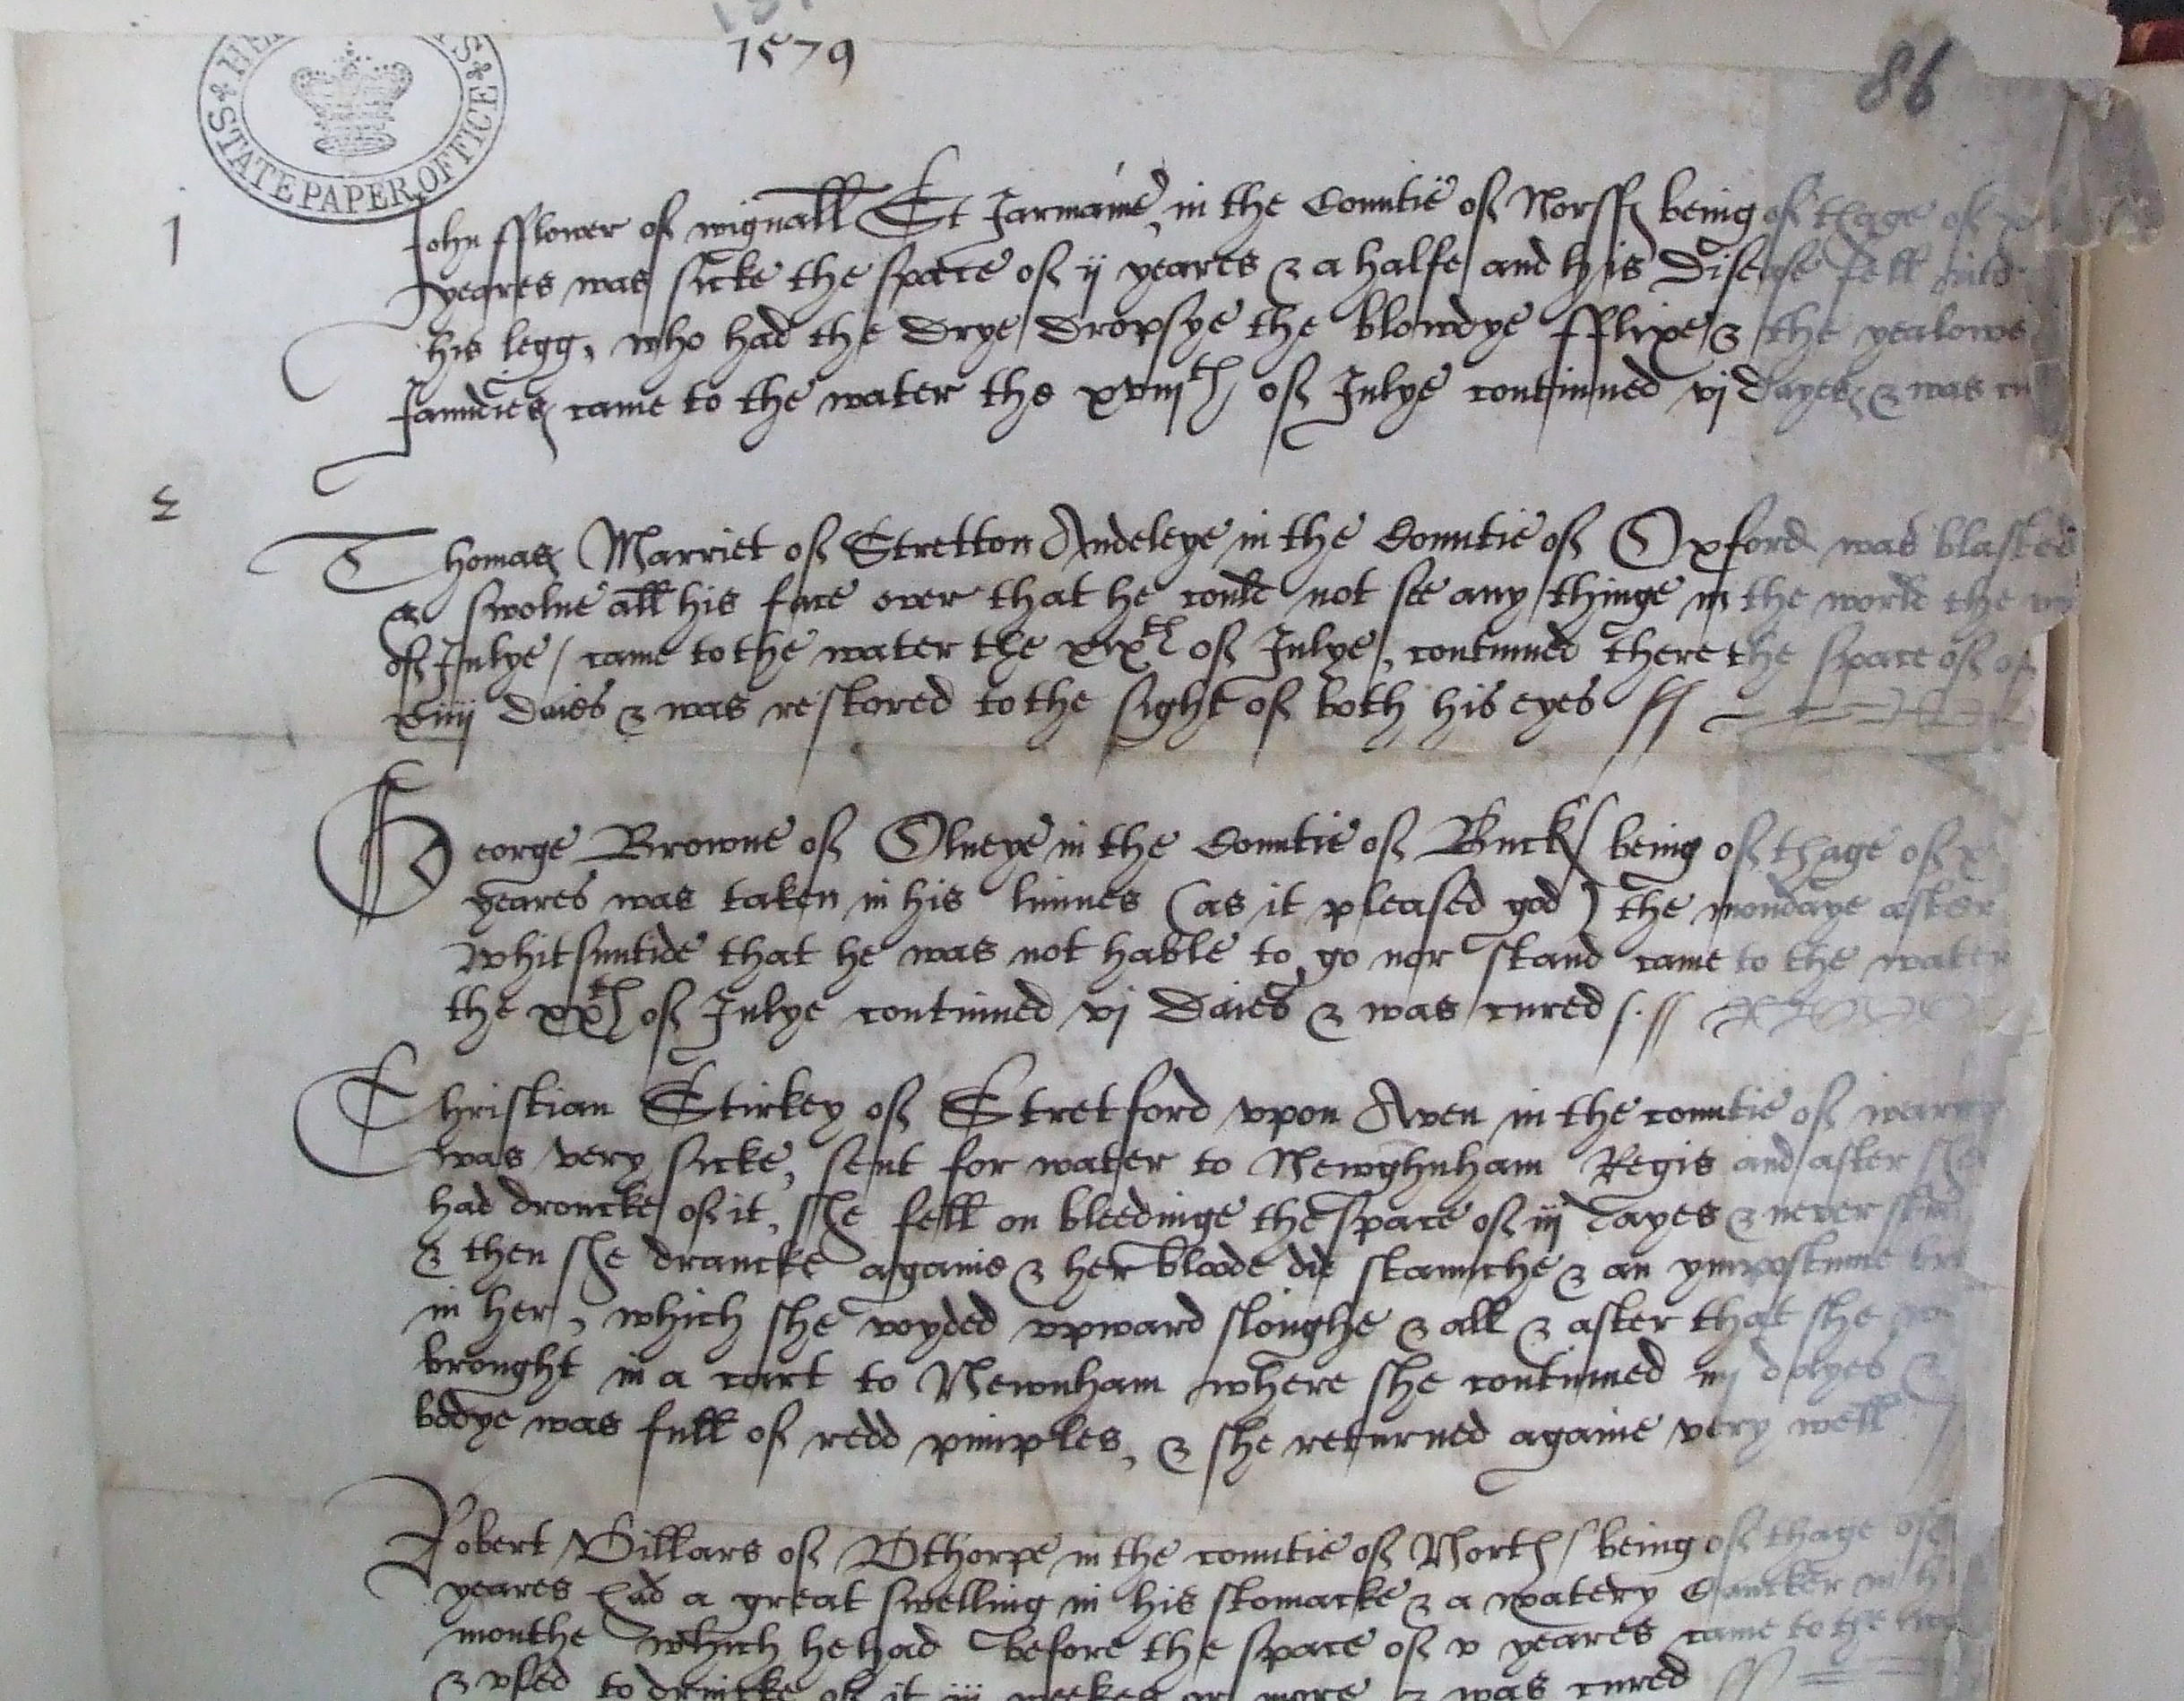 1579
86
STATE PAPER OFFICE
1
John fflower of wignall St Jarmaine, in the Countie of Norff being of thage of
yeares was sicke the space of ij yeares & a halfe and his Disease fell into
his legg, who had the Drye Dropsye the blowdye fflixe & the yealowe
Jaundies came to the water the xviijth of Julye continued vj dayes & was cu
2
Thomas Marriet of Stretton Audeleye in the Countie of Oxford was blasted
& swolne all his face over that he could not see any thinge in the world the
of Julye / came to the water the xixth of Julye, continued there the space of
xiiij Daies & was restored to the sight of both his eyes //
George Browne of Olneye in the Countie of Buck being of thage of
yeares was taken in his limnes (as it pleased god) the mondaye after
Whitsuntide that he was not hable to go nor stand came to the water
the xxth of Julye continued vj Daies & was cured /.//
Christian Stirkey of Stretford vpon Aven in the countie of warr
was very sicke, sent for water to Newghnham Regis and after she
had droncke of it, she fell on bleedinge the space of iij dayes & never
& then she drancke againe & her bloode did staunche & an ympostume
in her, which she voyded vpward sloughe & all & after that she
brought in a cart to Newnham where she continued iiij dayes &
bodye was full of redd pimples, & she returned againe very well
Robert Villars of Othorpe in the countie of North being of thage of
yeares had a great swelling in his stomacke & a watery Cancker in
mouthe which he had before the space of v yeares came to the
& vsed to drincke of it iij weekes or more & was cured